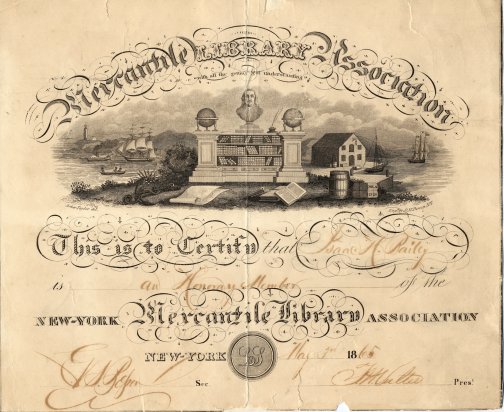 Mercantile LIBRARY Association
with all thy getting get understanding
This is to Certify that Isaac H. Bailey
is an Honorary Member of the
NEW-YORK Mercantile Library ASSOCIATION
NEW-YORK May 1865
Sec.
Pres.